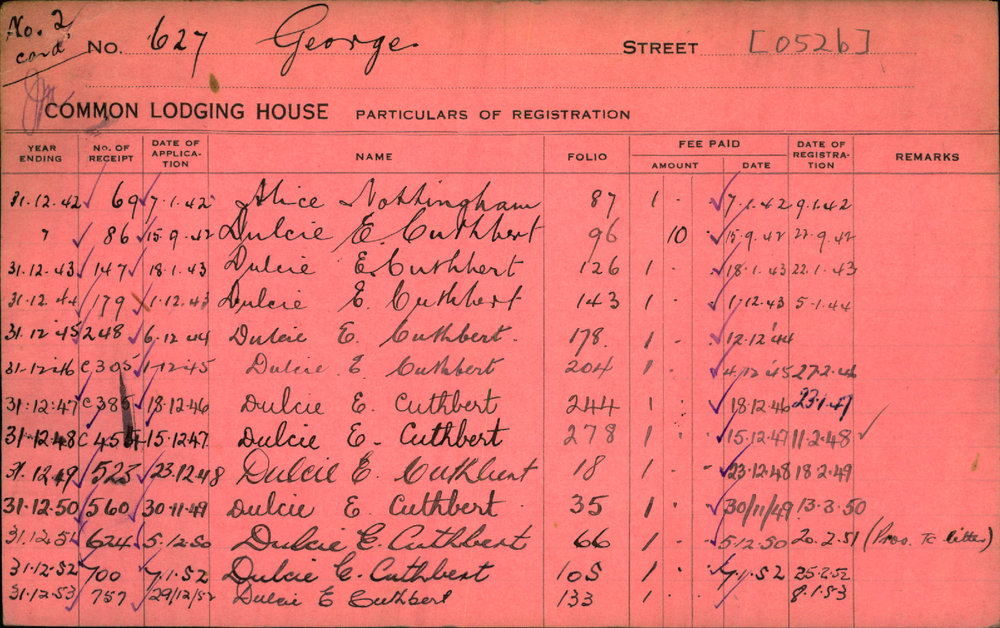 No. 2
card
No. 627 George STREET [052b]
COMMON LODGING HOUSE PARTICULARS OF REGISTRATION
YEAR ENDING No. OF RECEIPT DATE OF APPLICA-TION NAME FOLIO FEE PAID AMOUNT DATE DATE OF REGISTRA-TION REMARKS
31.12.42 69 7.1.42 Alice Nottingham 87 1 . 7.1.42 9.1.42
" 86 15.9.42 Dulcie E. Cuthbert 96 10 . 15.9.42 22.9.42
31.12.43 147 18.1.43 Dulcie E. Cuthbert 126 1 . . 18.1.43 22.1.43
31.12.44 179 1.12.43 Dulcie E. Cuthbert 143 1 . . 1.12.43 5.1.44
31.12.45 248 6.12.44 Dulcie E. Cuthbert. 178. 1 . . 12.12.44
31.12.46 C,305 1.12.45 Dulcie E. Cuthbert 204 1 . . 4/12.45 27.2.46
31.12.47 C385 18.12.46 Dulcie E. Cuthbert 244 1 . . 18.12.46 23.1.47
31.12.48 C454 15.12.47 Dulcie E. Cuthbert 278 1 . . 15.12.47 11.2.48 ✓
31.12.49 523 23.12.48 Dulcie E. Cuthbert 18 1 . . 23.12.48 18.2.49
31.12.50 560 30.11.49 Dulcie E. Cuthbert 35 1 . . 30/11/49 13.3.50
31.12.51 624 5.12.50 Dulcie E. Cuthbert 66 1 . . 5.12.50 20.2.51 (Prov. To letter)
31.12.52 700 7.1.52 Dulcie E. Cuthbert 105 1 . . 7.1.52 25.2.52
31.12.53 757 29/12/52 Dulcie E Cuthbert 133 1 . . 8.1.53